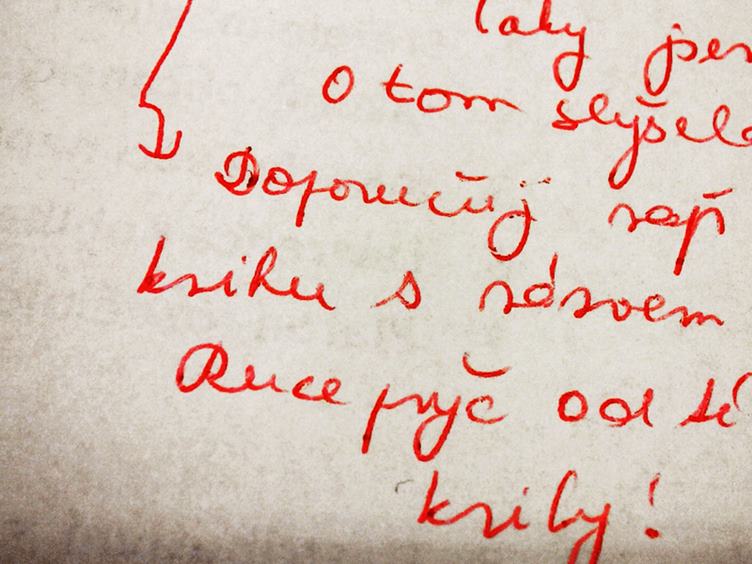 Taky jsem
o tom slyšela
Doporučuji
knihu s názvem
Ruce pryč od té
knihy!